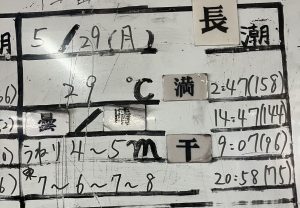 5/29(月) 長潮
29 ℃ 満 2:47(158)
曇/晴 14:47(144)
うねり4~5m 干 9:07(96)
東7~6~7~8 20:58(75)